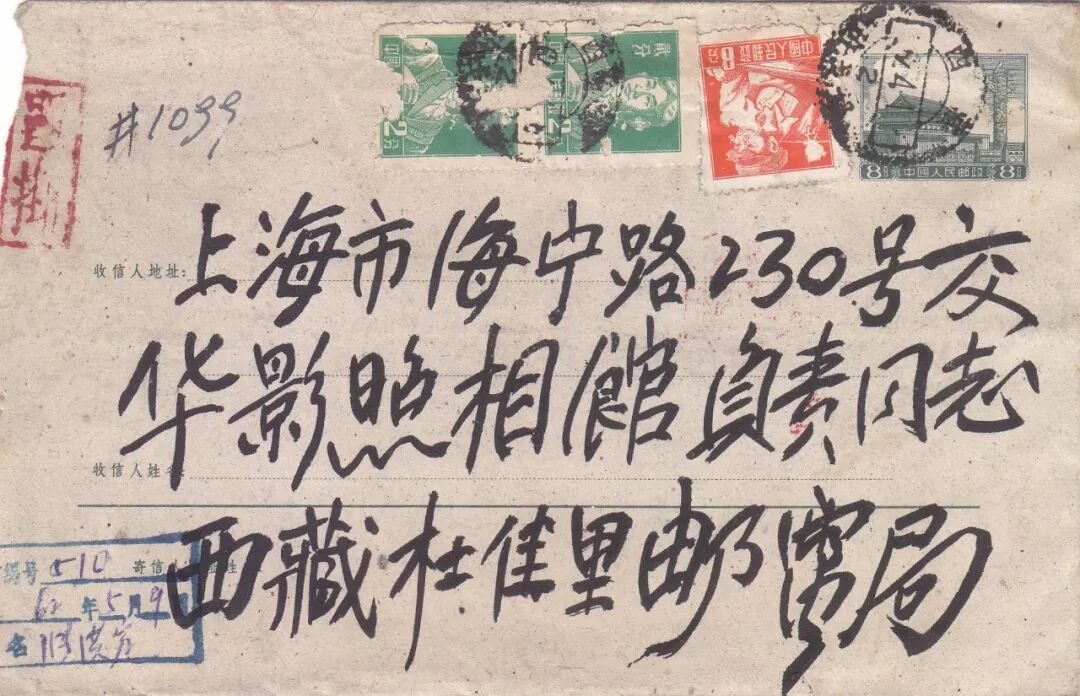 #1099
中國
2分
貳分
2分
中國人民郵政
8分
8分 中國人民邮政 8分
收信人地址:
上海市海宁路230号交
华影照相館負责同志
收信人姓名:
西藏杜佳里邮電局
号 510 寄信人 姓
62年5月9
名